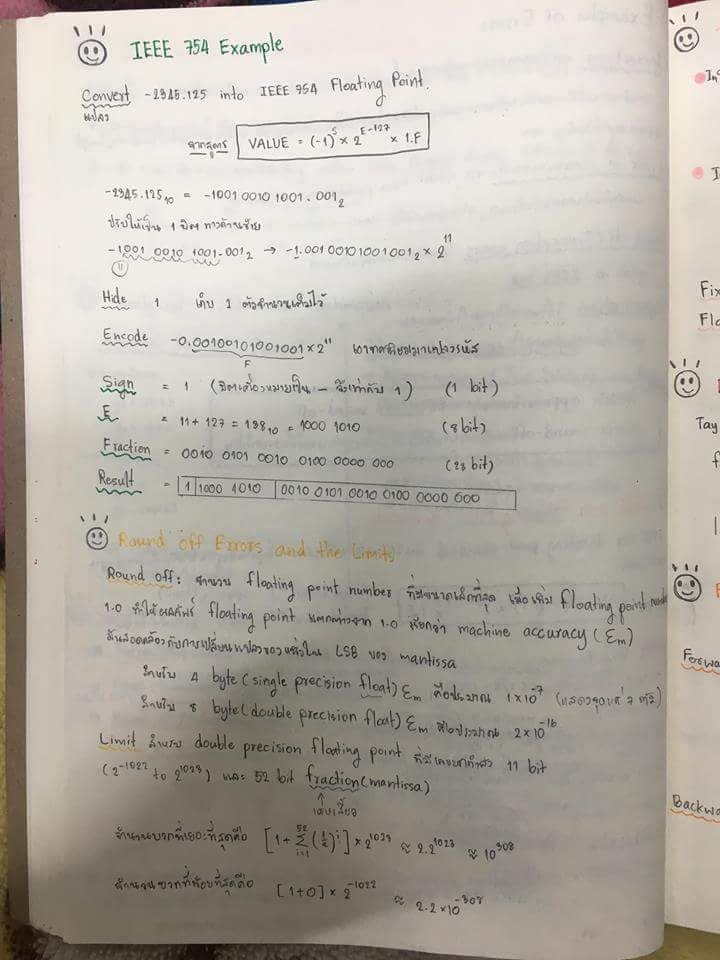 IEEE 754 Example
Convert -2345.125 into IEEE 754 Floating Point.
แปลง
จากสูตร VALUE = (-1)^S × 2^E-127 × 1.F
-2345.125₁₀ = -1001 0010 1001.001₂
ปรับให้เป็น 1 บิตทางด้านซ้าย
-1001 0010 1001.001₂ → -1.001 0010 1001 001₂ × 2^11
11
Hide 1 เก็บ 1 ตัวจำนวนเต็มไว้
Encode -0.00100101001001 × 2^11
F
Sign = 1 (บิตเครื่องหมายเป็น - จึงเท่ากับ 1) (1 bit)
E = 11 + 127 = 138₁₀ = 1000 1010 (8 bit)
Fraction = 0010 0101 0010 0100 0000 000 (23 bit)
Result = 1 1000 1010 0010 0101 0010 0100 0000 000
Round off Errors and the Limits
Round off: จำนวน floating point number ที่มีขนาดเล็กที่สุด เมื่อเพิ่ม floating point
1.0 ทำให้ผลลัพธ์ floating point แตกต่างจาก 1.0 เรียกว่า machine accuracy (Ɛm)
มันสอดคล้องกับการเปลี่ยนแปลงของหนึ่งใน LSB ของ mantissa
สำหรับ 4 byte (single precision float) Ɛm คือประมาณ 1×10^-7
สำหรับ 8 byte (double precision float) Ɛm คือประมาณ 2×10^-16
Limit สำหรับ double precision floating point ที่มีเลขยกกำลัง 11 bit
(2^-1022 to 2^1023) และ 52 bit fraction (mantissa)
↑
จำนวนบวกที่เยอะที่สุดคือ [1 + Σ_{i=1}^{52} (1/2)^i] × 2^1023 ≈ 2.2^1023 ≈ 10^308
จำนวนบวกที่น้อยที่สุดคือ [1+0] × 2^-1022 ≈ 2.2×10^-308
Fix
Flo
Tay
f
Forwa
Backwa